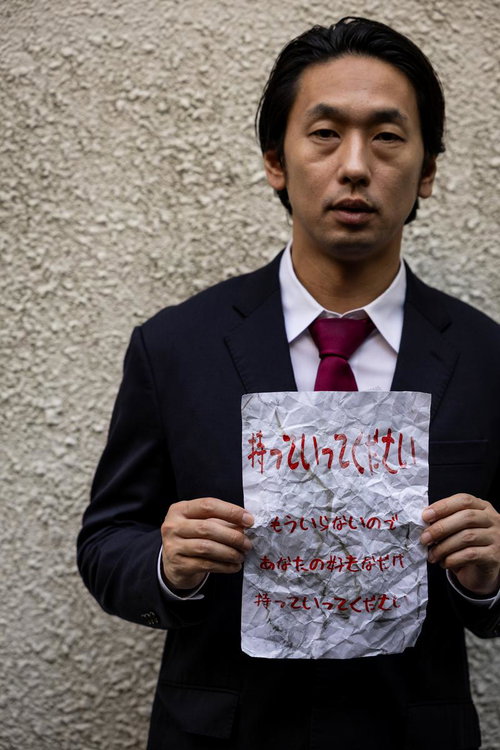 持っていってください
もういらないので
あなたの好きなだけ
持っていってください